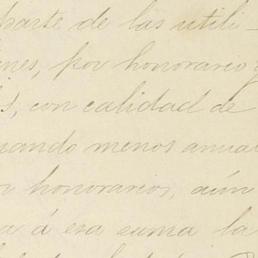 parte de las utili-
nes, por honorario y
s, con calidad de
uando menos anua
r honorarios, aún
a á esa suma la